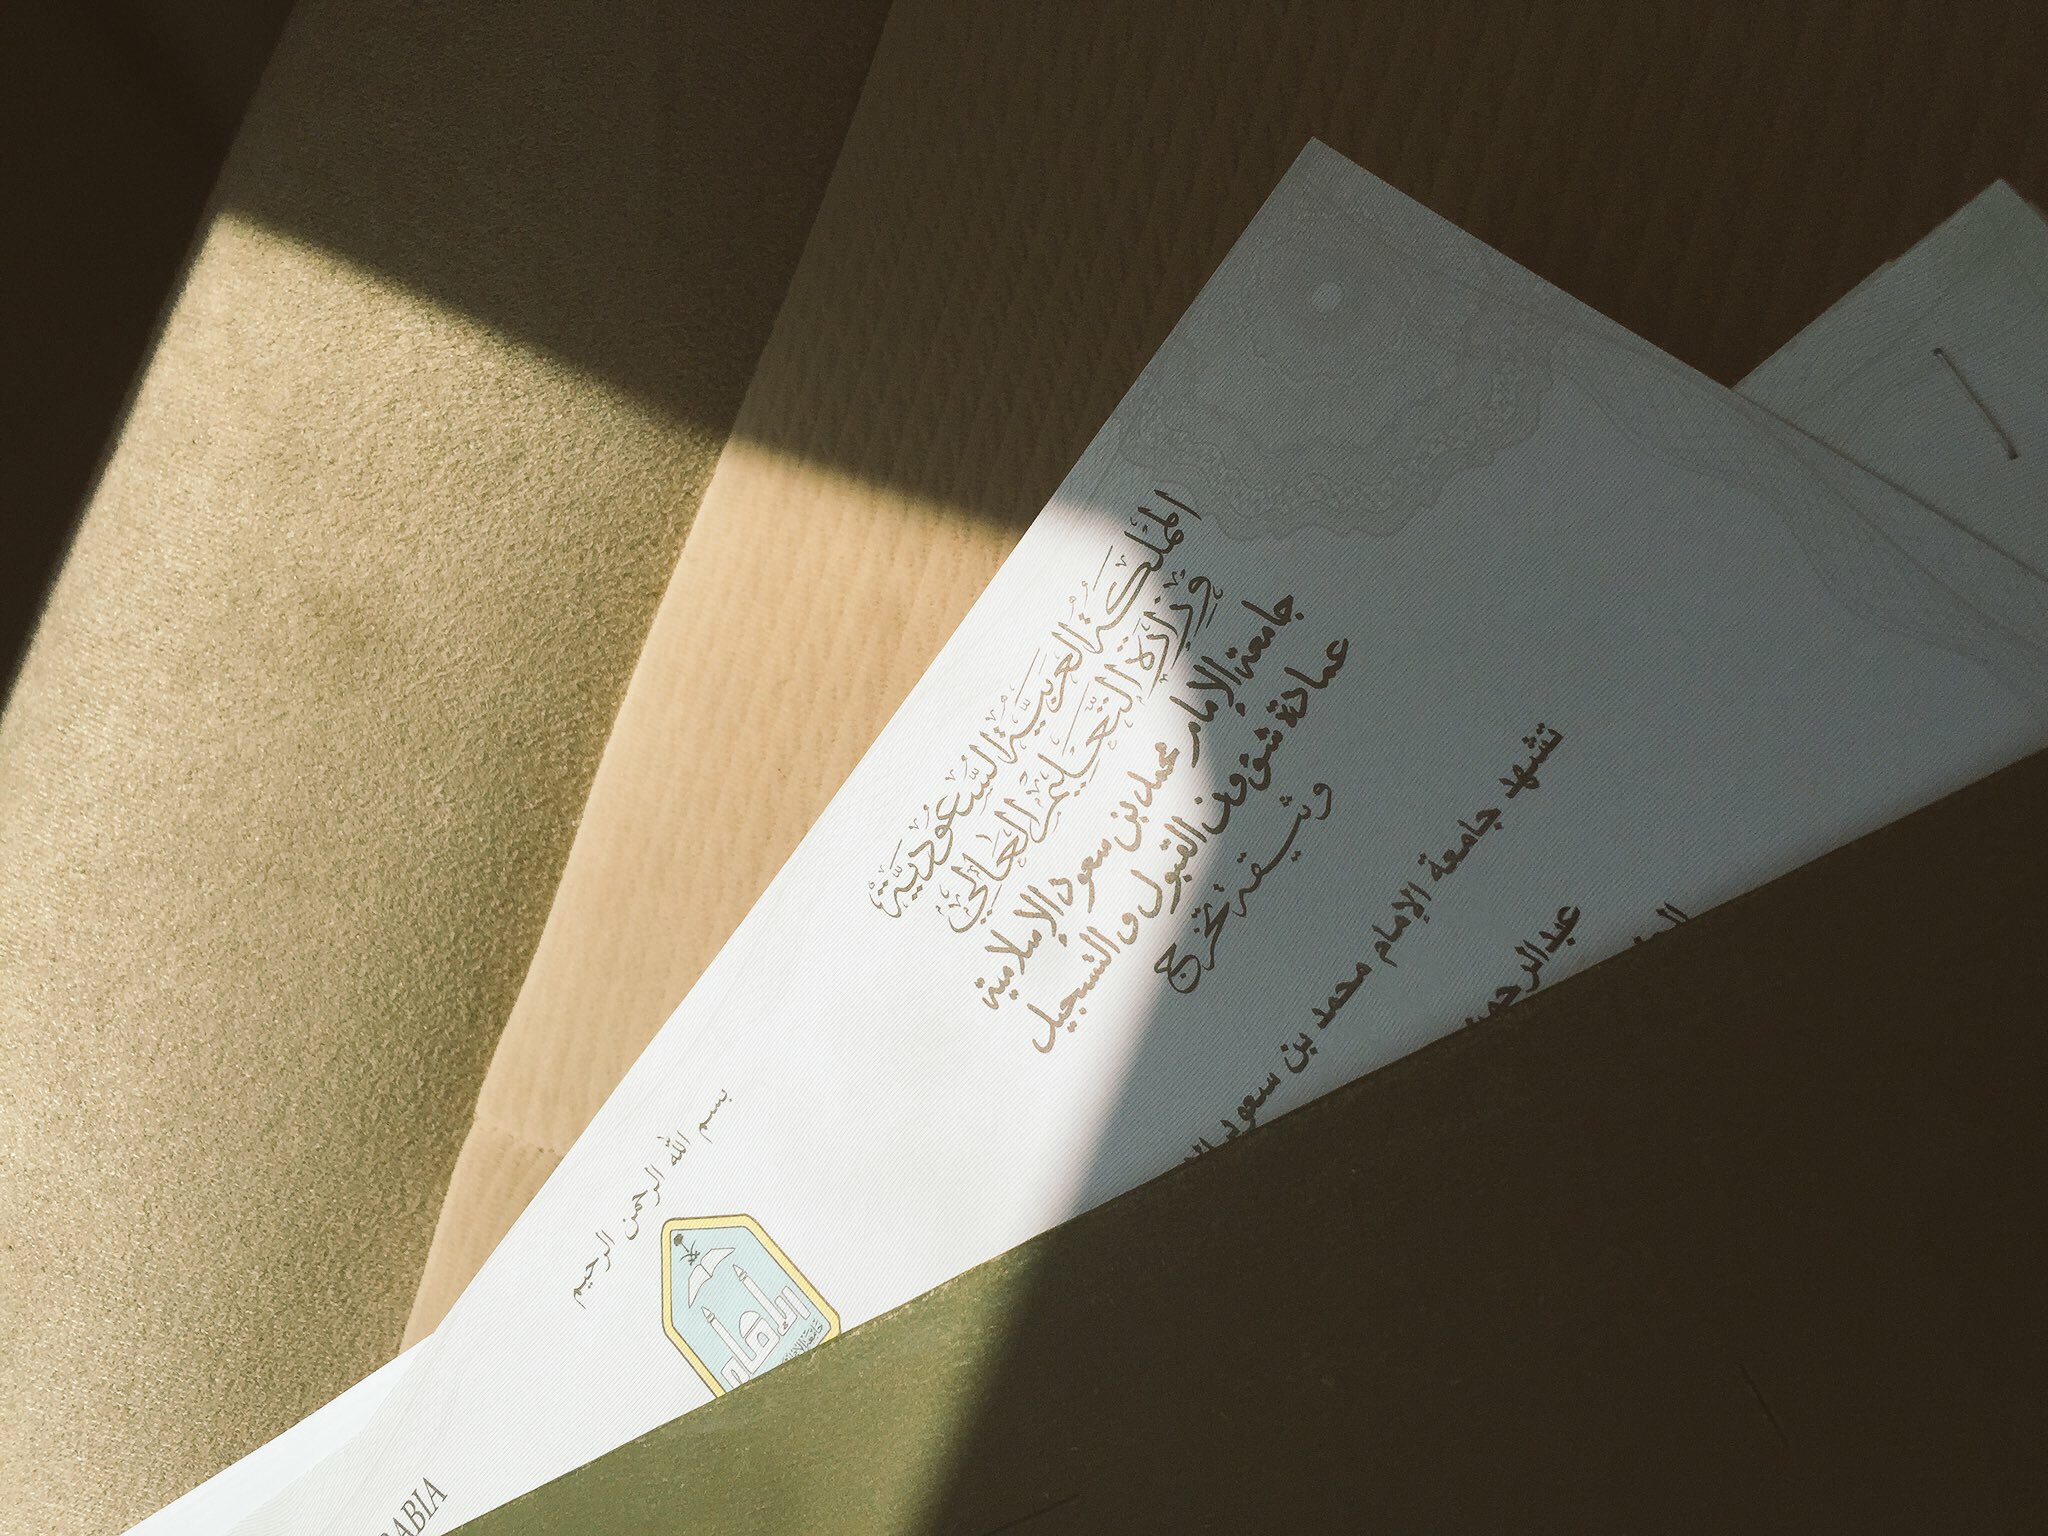 المملكة العربية السعودية
وزارة التعليم العالي
جامعة الإمام محمد بن سعود الإسلامية
عمادة شؤون القبول والتسجيل
وثيقة تخرج
تشهد جامعة الإمام محمد بن سعود
بسم الله الرحمن الرحيم